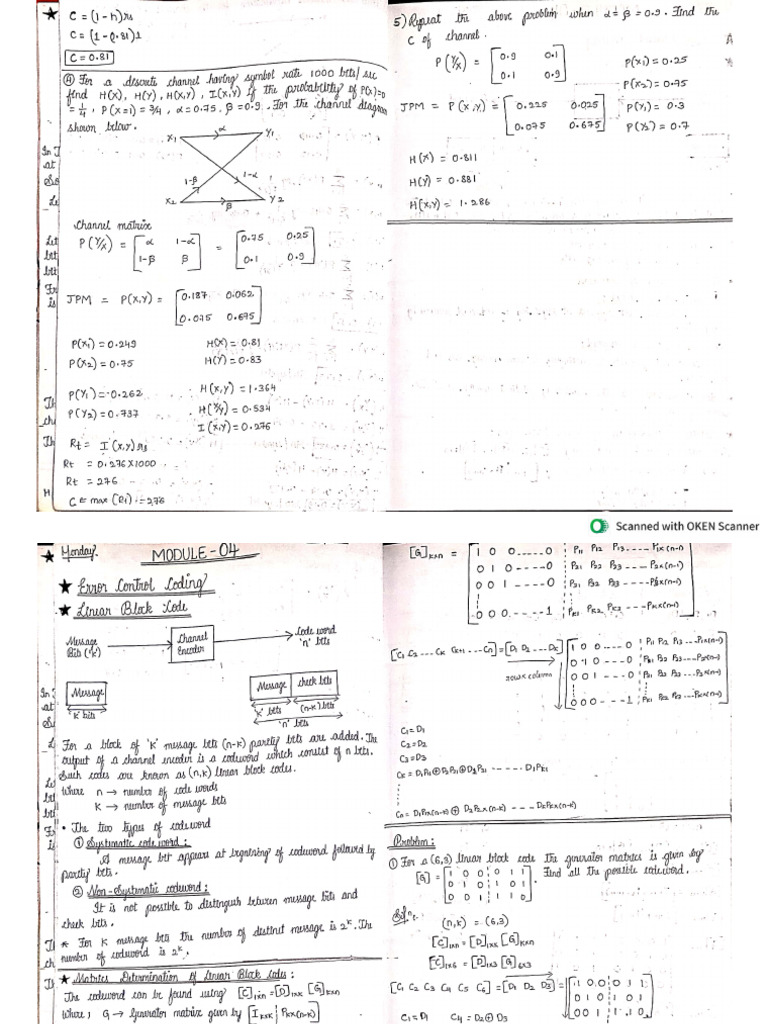 ★ C = (1-h)rs
C = (1-0.81)1
C = 0.81
④ For a discrete channel having symbol rate 1000 bits/sec
find H(X), H(Y), H(X,Y), I(X,Y) if the probability of P(X=0
= 1/4, P(X=1) = 3/4, α=0.75, β=0.9. For the channel diagram
shown below.
X1 α Y1
1-β 1-α
X2 β Y2
Channel matrix
P(Y/X) = [α 1-α
1-β β] = [0.75 0.25
0.1 0.9]
JPM = P(X,Y) = [0.187 0.062
0.075 0.675]
P(X1) = 0.249 H(X) = 0.81
P(X2) = 0.75 H(Y) = 0.83
P(Y1) = 0.262 H(X,Y) = 1.364
P(Y2) = 0.737 H(Y/X) = 0.534
I(X,Y) = 0.276
Rt = I(X,Y) rs
Rt = 0.276X1000
Rt = 276
C = max (Rt) = 276
5) Repeat the above problem when α = β = 0.9. Find the
C of channel.
P(Y/X) = [0.9 0.1
0.1 0.9]
P(X1) = 0.25
P(X2) = 0.75
JPM = P(X,Y) = [0.225 0.025
0.075 0.675]
P(Y1) = 0.3
P(Y2) = 0.7
H(X) = 0.811
H(Y) = 0.881
H(X,Y) = 1.286
Scanned with OKEN Scanner
★ Monday. MODULE-04
★ Error Control Coding
★ Linear Block Code
Message Bits ('k') Channel Encoder Code word 'n' bits
Message Message check bits
'k' bits 'k' bits (n-k) bits
'n' bits
For a block of 'K' message bits (n-k) parity bits are added. The
output of a channel encoder is a codeword which consist of n bits.
Such codes are known as (n,k) linear block codes.
Where n → number of code words
K → number of message bits
• The two types of codeword
① Systematic code word :
A message bit appears at beginning of codeword followed by
parity bits.
② Non-Systematic codeword :
It is not possible to distinguish between message bits and
check bits.
★ For K message bits the number of distinct message is 2^k. The
number of codeword is 2^k.
★ Matrix Determination of Linear Block codes :
The codeword can be found using [C]1xn = [D]1xk [G]kxn
Where, G → Generator matrix given by [Ikxk ¦ Pkx(n-k)]
[G]kxn = [1 0 0.....0 P11 P12 P13.... P1x(n-1)
0 1 0 ----0 P21 P22 P23 ---- P2x(n-1)
0 0 1 ----0
0 0 0.....1 PK1 PK2
[C1 C2 .... Ck Ck+1 ... Cn] = [D1 D2 ...Dk]
rowx column
C1 = D1
C2 = D2
C3 = D3
Cn = D1P1x(n-k) ⊕ D2P2x(n-k) --- DkPkx(n-k)
Problem :
① For a (6,3) linear block code the generator matrix is given by
[G] = [1 0 0 0 1 1
0 1 0 1 0 1
0 0 1 1 1 0]. Find all the possible codeword.
Soln:
(n,k) = (6,3)
[C]1xn = [D]1xk [G]kxn
[C]1x6 = [D]1x3 [G]6x3
[C1 C2 C3 C4 C5 C6] = [D1 D2 D3] [1 0 0 0 1 1
0 1 0 1 0 1
0 0 1 1 1 0]
C1 = D1 C4 = D2⊕D3